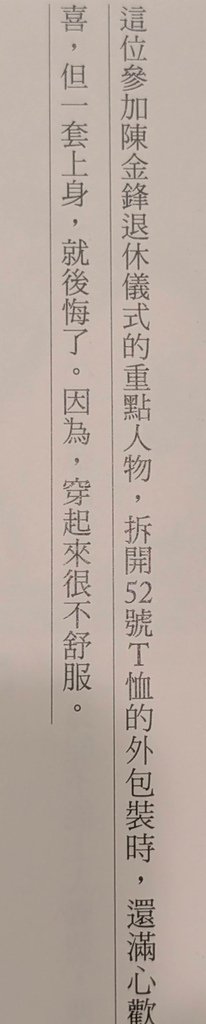 這位參加陳金鋒退休儀式的重點人物，拆開52號T恤的外包裝時，還滿心歡
喜，但一套上身，就後悔了。因為，穿起來很不舒服。